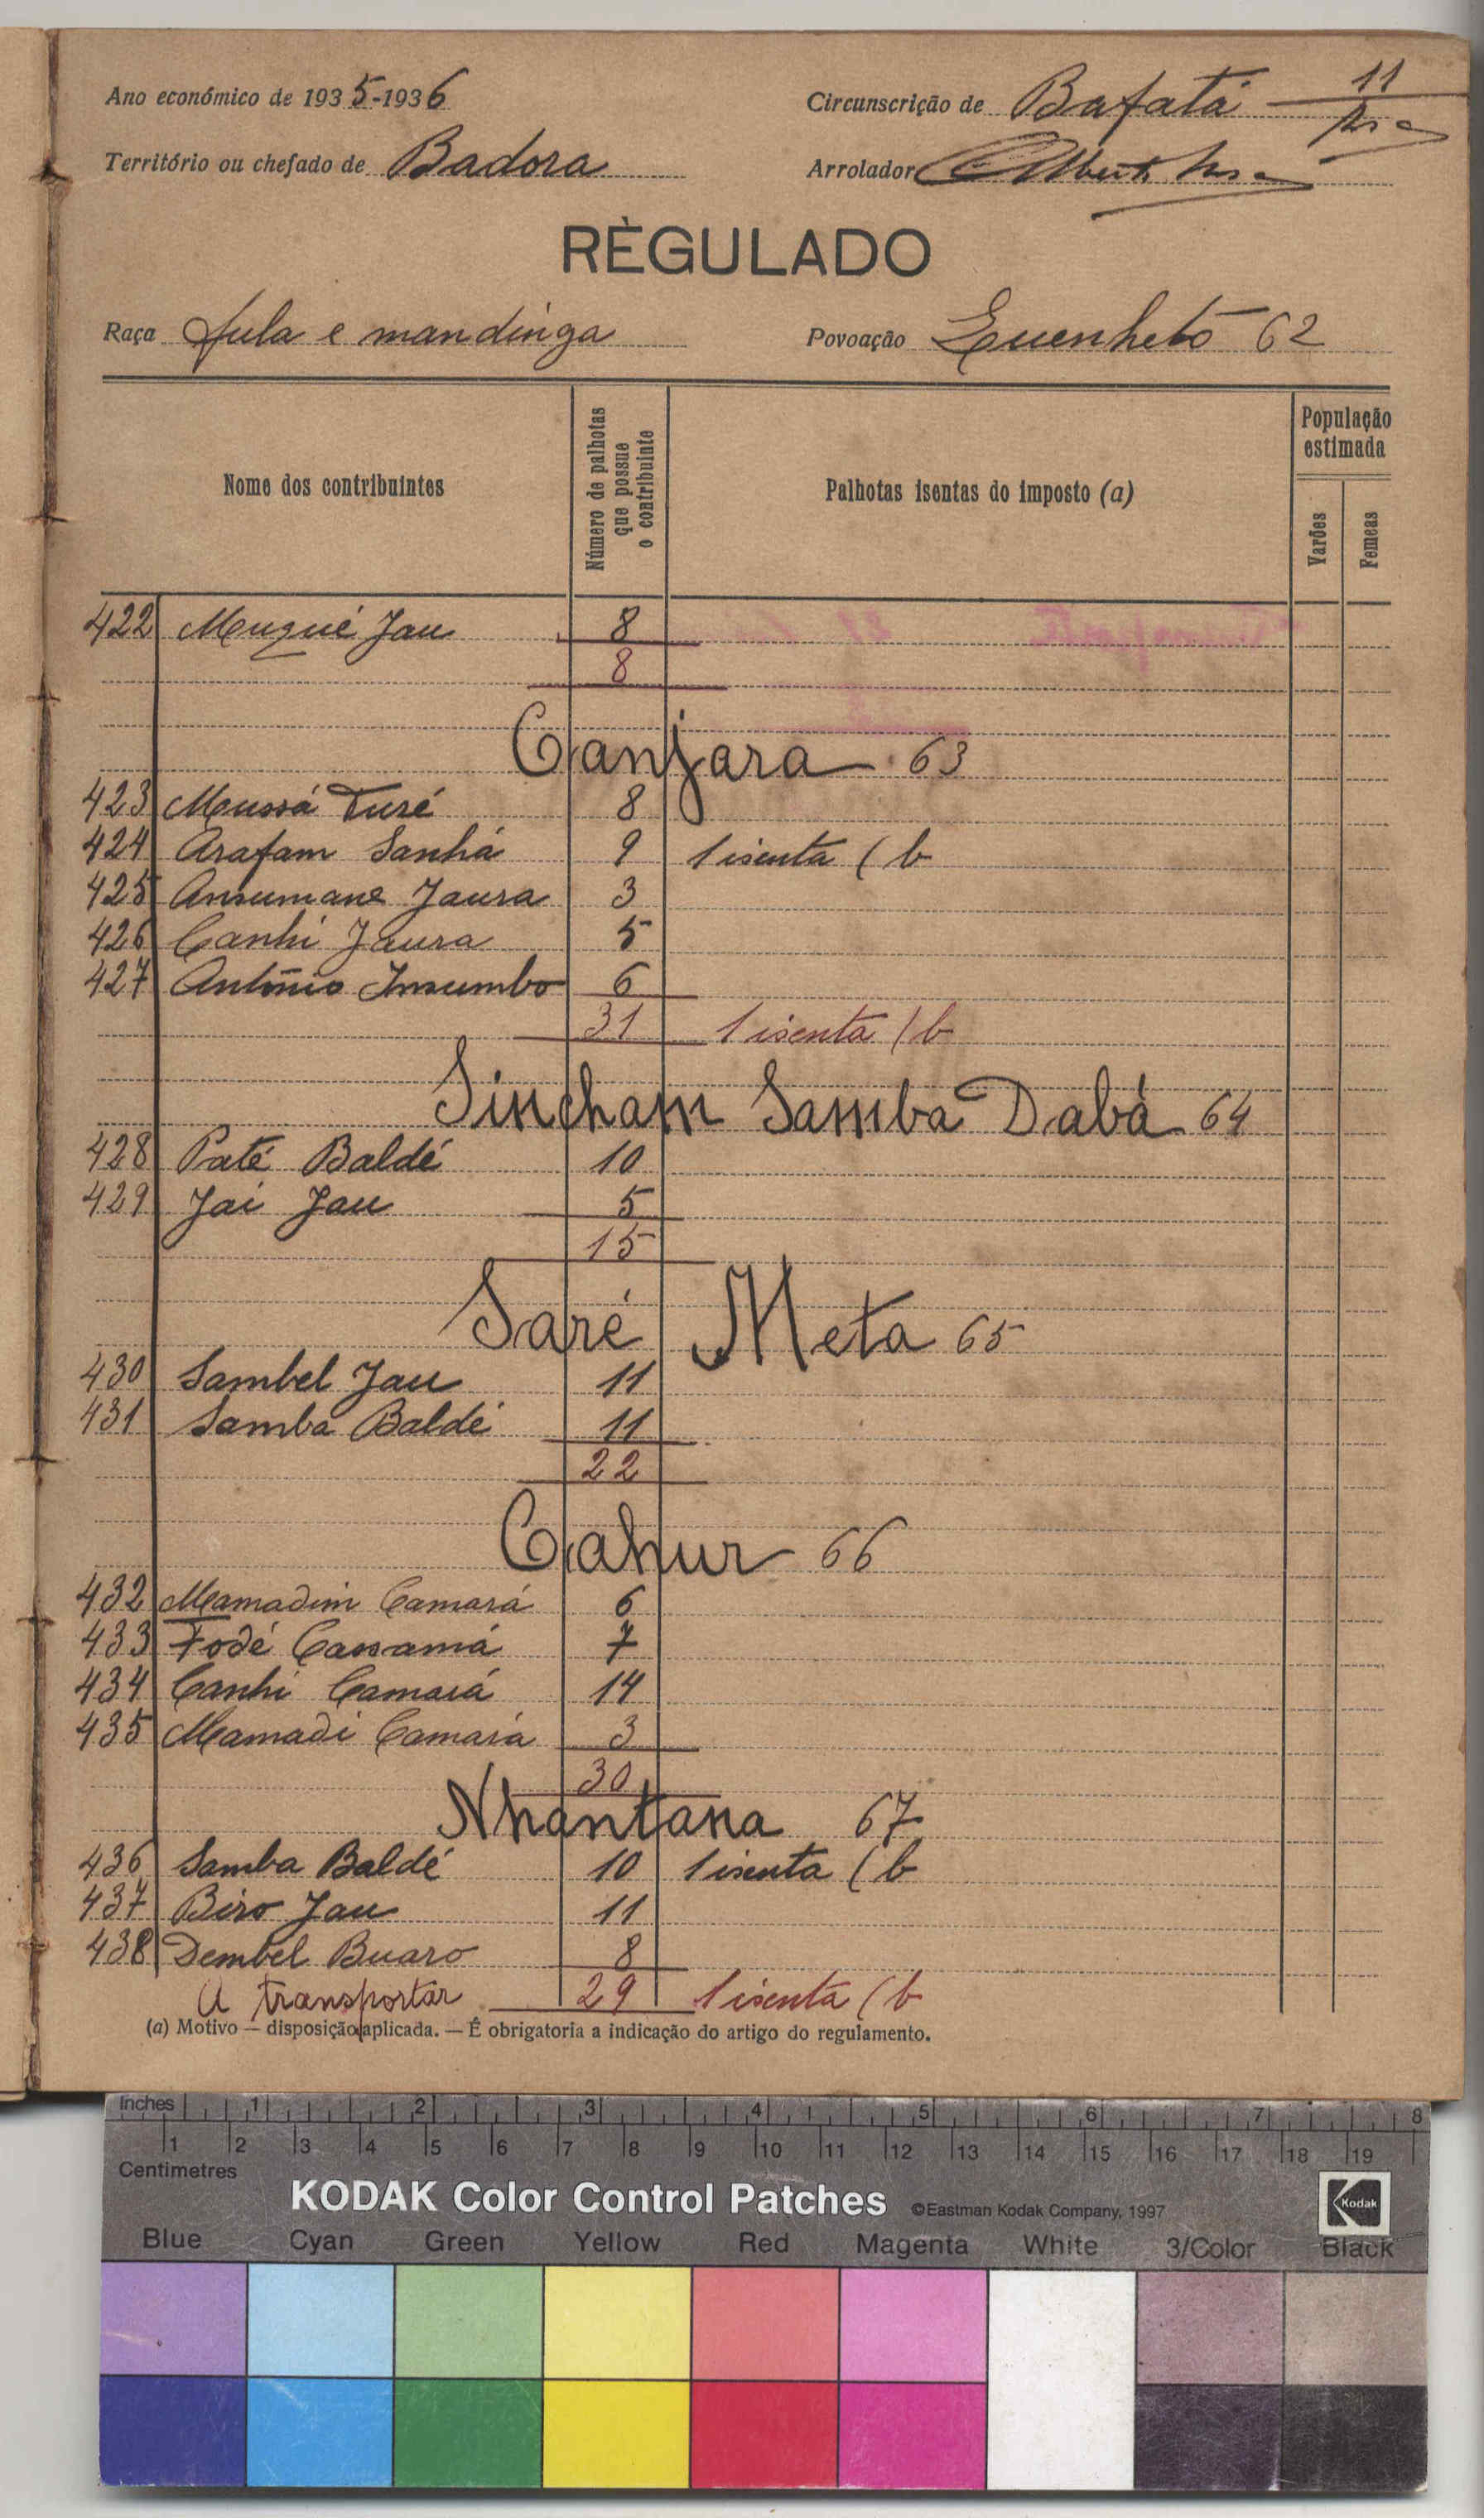 Ano económico de 1935-1936
Circunscrição de Bafatá 11
Território ou chefado de Badora
Arrolador
RÈGULADO
Raça fula e mandinga
Povoação 62
Nome dos contribuintes
Número de palhotas que possue o contribuinte
Palhotas isentas do imposto (a)
População estimada
Varões
Femeas
422 Muqué Jau 8
8
Canjara 63
423 Mussá Turé 8
424 Arafam Sanhá 9 1 isenta (b
425 Ansumane Jaura 3
426 Canhi Jaura 5
427 António Insumbo 6
31 1 isenta (b
Sincham Samba Dabá 64
428 Paté Baldé 10
429 Jai Jau 5
15
Saré Meta 65
430 Sambel Jau 11
431 Samba Baldé 11
22
Cahur 66
432 Mamadim Camará 6
433 Fodé Cassamá 7
434 Canhi Camará 14
435 Mamadi Camará 3
30
Nhantana 67
436 Samba Baldé 10 1 isenta (b
437 Biro Jau 11
438 Dembel Buaro 8
A transportar 29 1 isenta (b
(a) Motivo — disposição aplicada. — É obrigatoria a indicação do artigo do regulamento.
Inches 1 2 3 4 5 6 7 8
1 2 3 4 5 6 7 8 9 10 11 12 13 14 15 16 17 18 19
Centimetres
KODAK Color Control Patches ©Eastman Kodak Company, 1997 Kodak
Blue Cyan Green Yellow Red Magenta White 3/Color Black